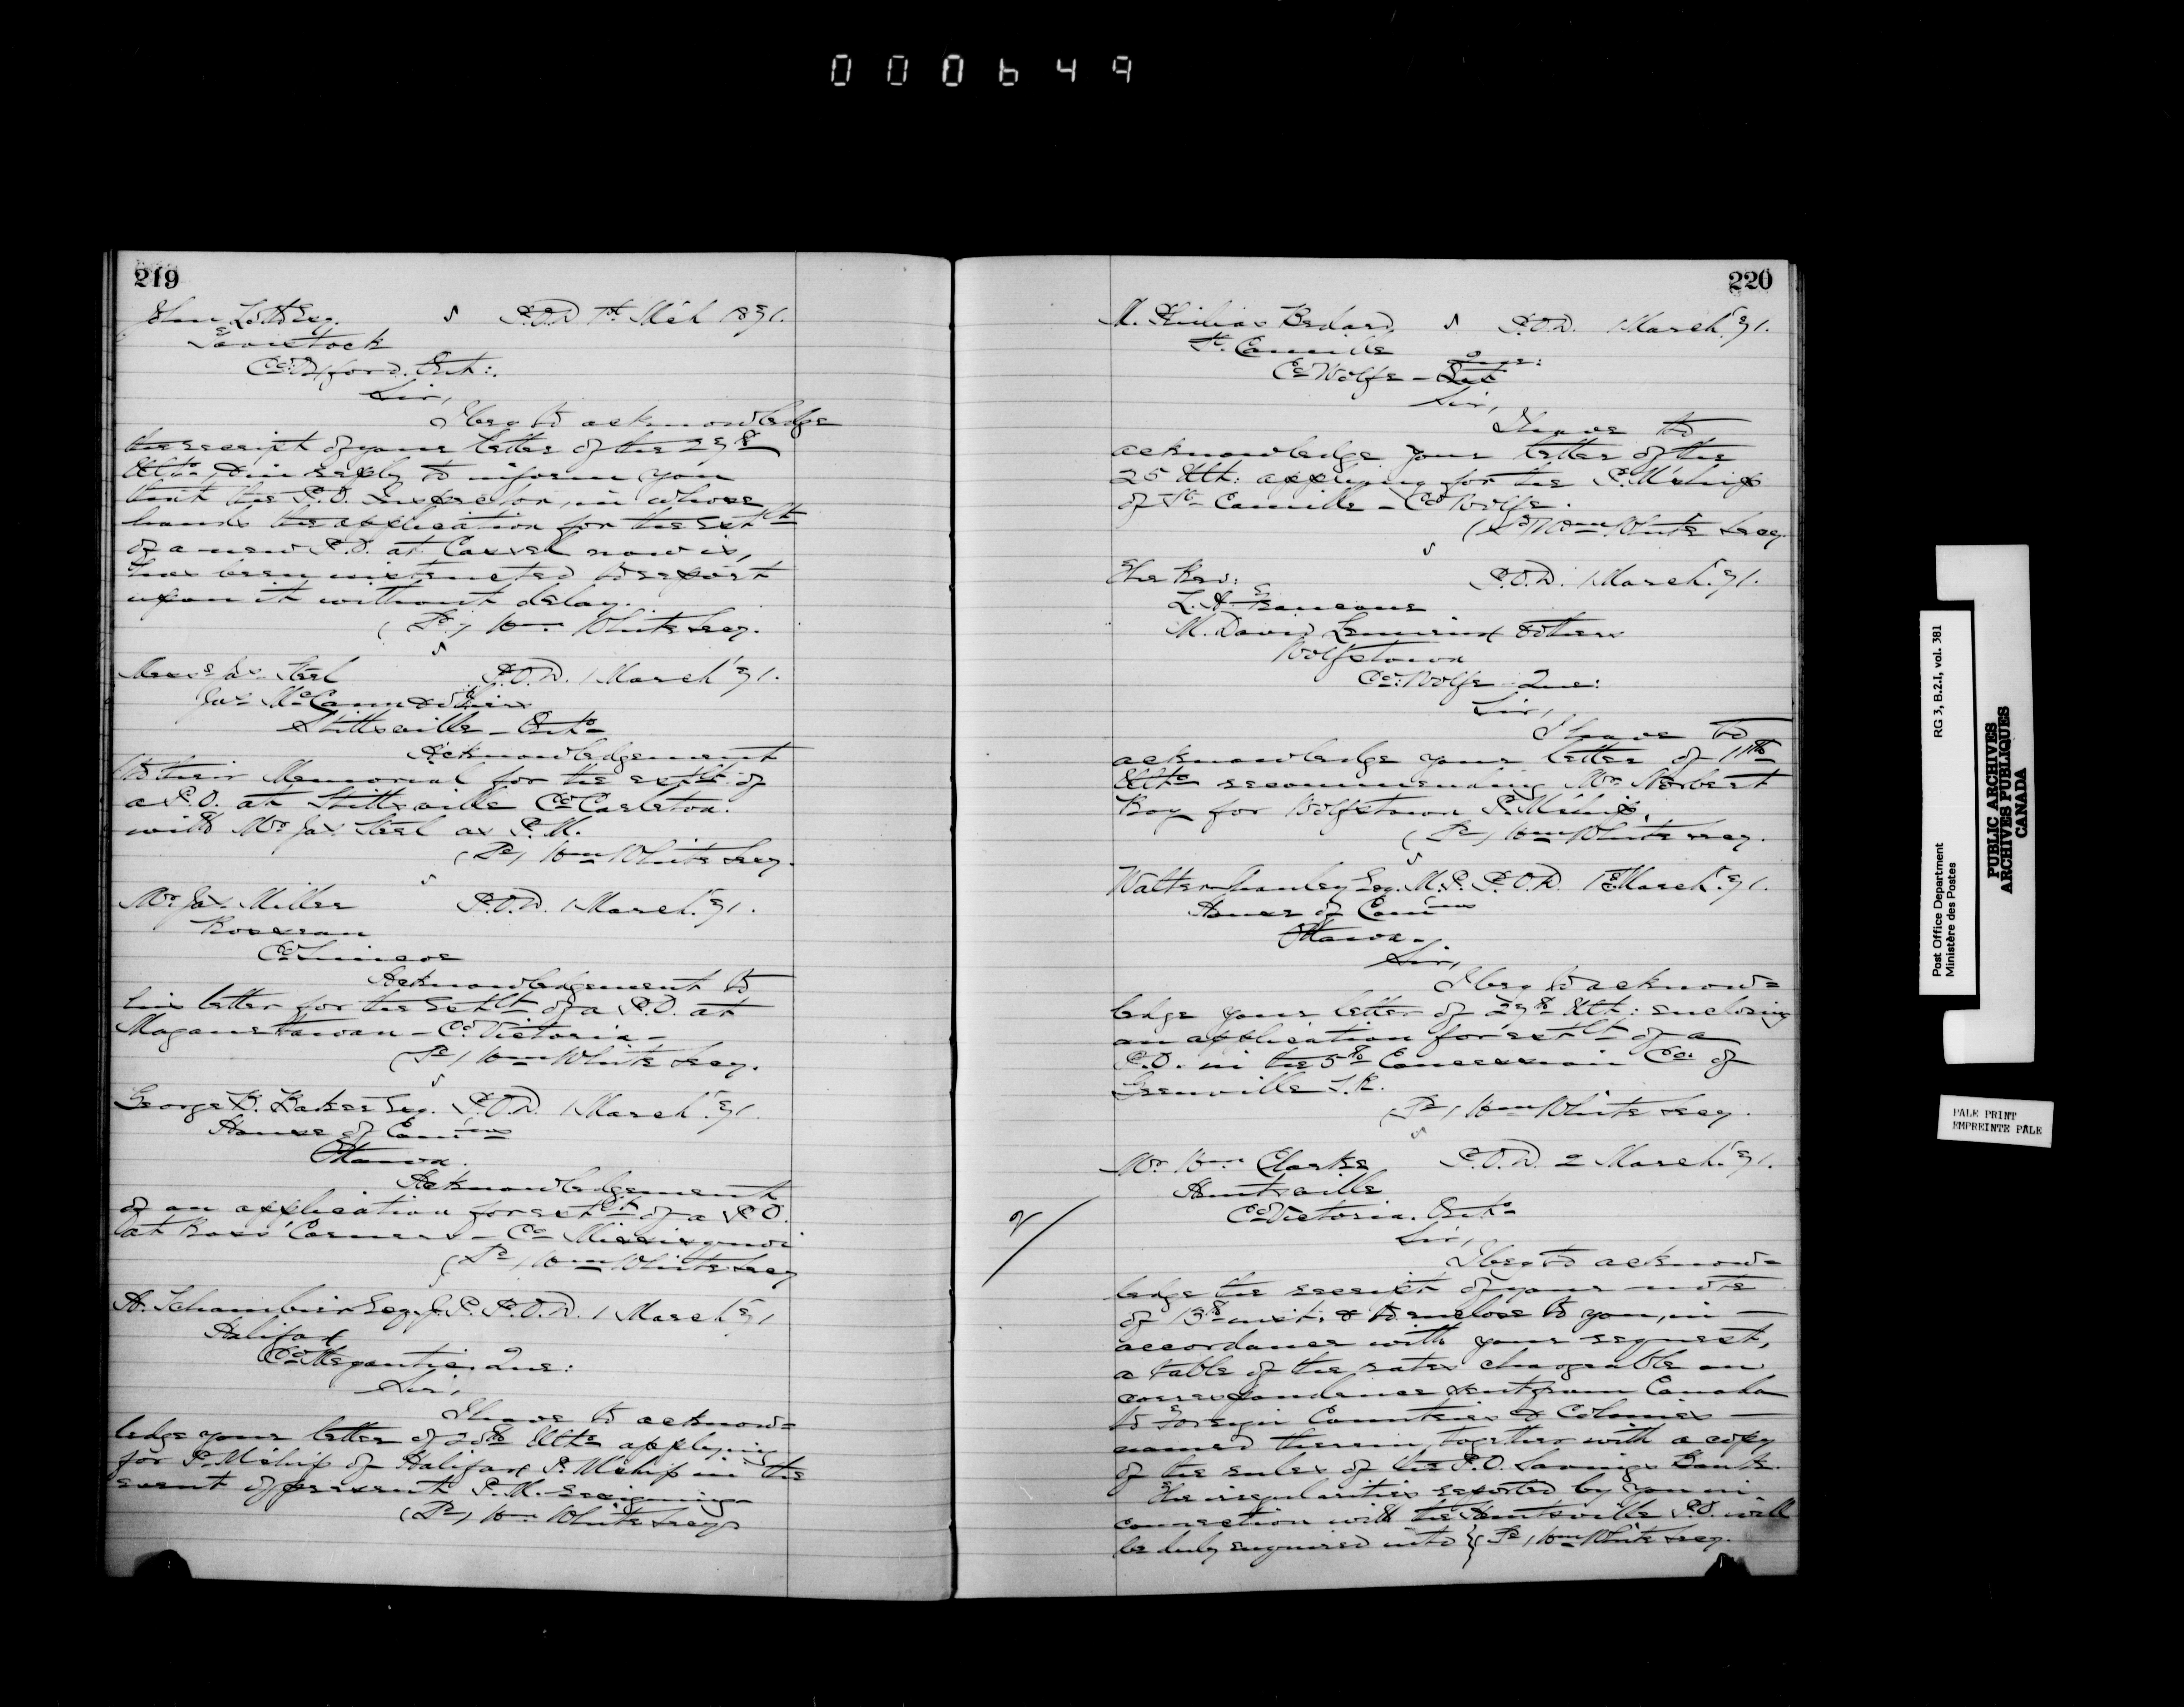 000649
219
John Loth Esq. P.O.D. 1st Mch 1871.
Tavistock
Co: Oxford. Ont:.
Sir,
I beg to acknowledge
the receipt of your letter of the 27th
Ulto, & in reply to inform you
that the P.O. Inspector, in whose
hands the application for the estlt
of a new P.O. at Cassel now is,
has been instructed to report
upon it without delay.
(Sd.) Wm White Secy.
Messrs Jas. Steel P.O.D. 1 March '71.
Jas McCann & others
Stittsville - Onto
Acknowledgement
to their Memorial for the estlt of
a P.O. at Stittsville Co Carleton.
with Mr Jas. Steel as P.M.
(Sd) Wm White Secy.
Mr Jas. Miller P.O.D. 1 March '71.
Rosseau
Co Simcoe
Acknowledgement to
his letter for the Estlt of a P.O. at
Maganetawan - Co Victoria -
(Sd) Wm White Secy.
George B. Baker Esq. P.O.D. 1 March '71.
House of Commons
Ottawa.
Acknowledgement
of an application for estlt of a P.O.
at Ross' Corners - Co Missisquoi
(Sd) Wm White Secy
Esq. J.P. P.O.D. 1 March '71
Halifax
Co Megantic. Que:
Sir,
I have to acknow=
ledge your letter of 25th Ulto applying
for P.M'ship of Halifax P.M'ship in the
event of present P.M. resigning
(Sd) Wm White Secy
220
M. Bedard P.O.D. 1 March '71.
St. Camille
Co Wolfe - Que:
Sir,
I have to
acknowledge your letter of the
25 Ult: applying for the P.M'ship
of St Camille - Co Wolfe.
(Sd) Wm White Secy
The Rev: P.O.D. 1 March '71.
L. A.
M. David Lemieux & others
Wolfstown
Co: Wolfe Que:
Sir,
I have to
acknowledge your letter of 11th
Ulto recommending Mr Norbert
Roy for Wolfstown P.M'ship.
(Sd) Wm White Secy.
Walter Shanley Esq. M.P. P.O.D. 1 March '71.
House of Commons
Ottawa.
Sir,
I beg to acknow=
ledge your letter of 27th Ult: enclosing
an application for estlt of a
P.O. in the 5th Concession Co. of
Grenville S.R.
(Sd) Wm White Secy.
Mr Wm Clarke P.O.D. 2 March '71.
Huntsville
Co Victoria. Onto
Sir,
I beg to acknow=
ledge the receipt of your note
of 13th inst: & to enclose to you, in
accordance with your request,
a table of the rates chargeable on
correspondence sent from Canada
to Foreign Countries & Colonies
named therein, together with a copy
of the rules of the P.O. Savings Bank.
The irregularities reported by you in
connection with the Huntsville P.O. will
be duly enquired into } (Sd) Wm White Secy.
Post Office Department
Ministère des Postes
RG 3, B.2.I, vol. 381
PUBLIC ARCHIVES
ARCHIVES PUBLIQUES
CANADA
PALE PRINT
EMPREINTE PÂLE